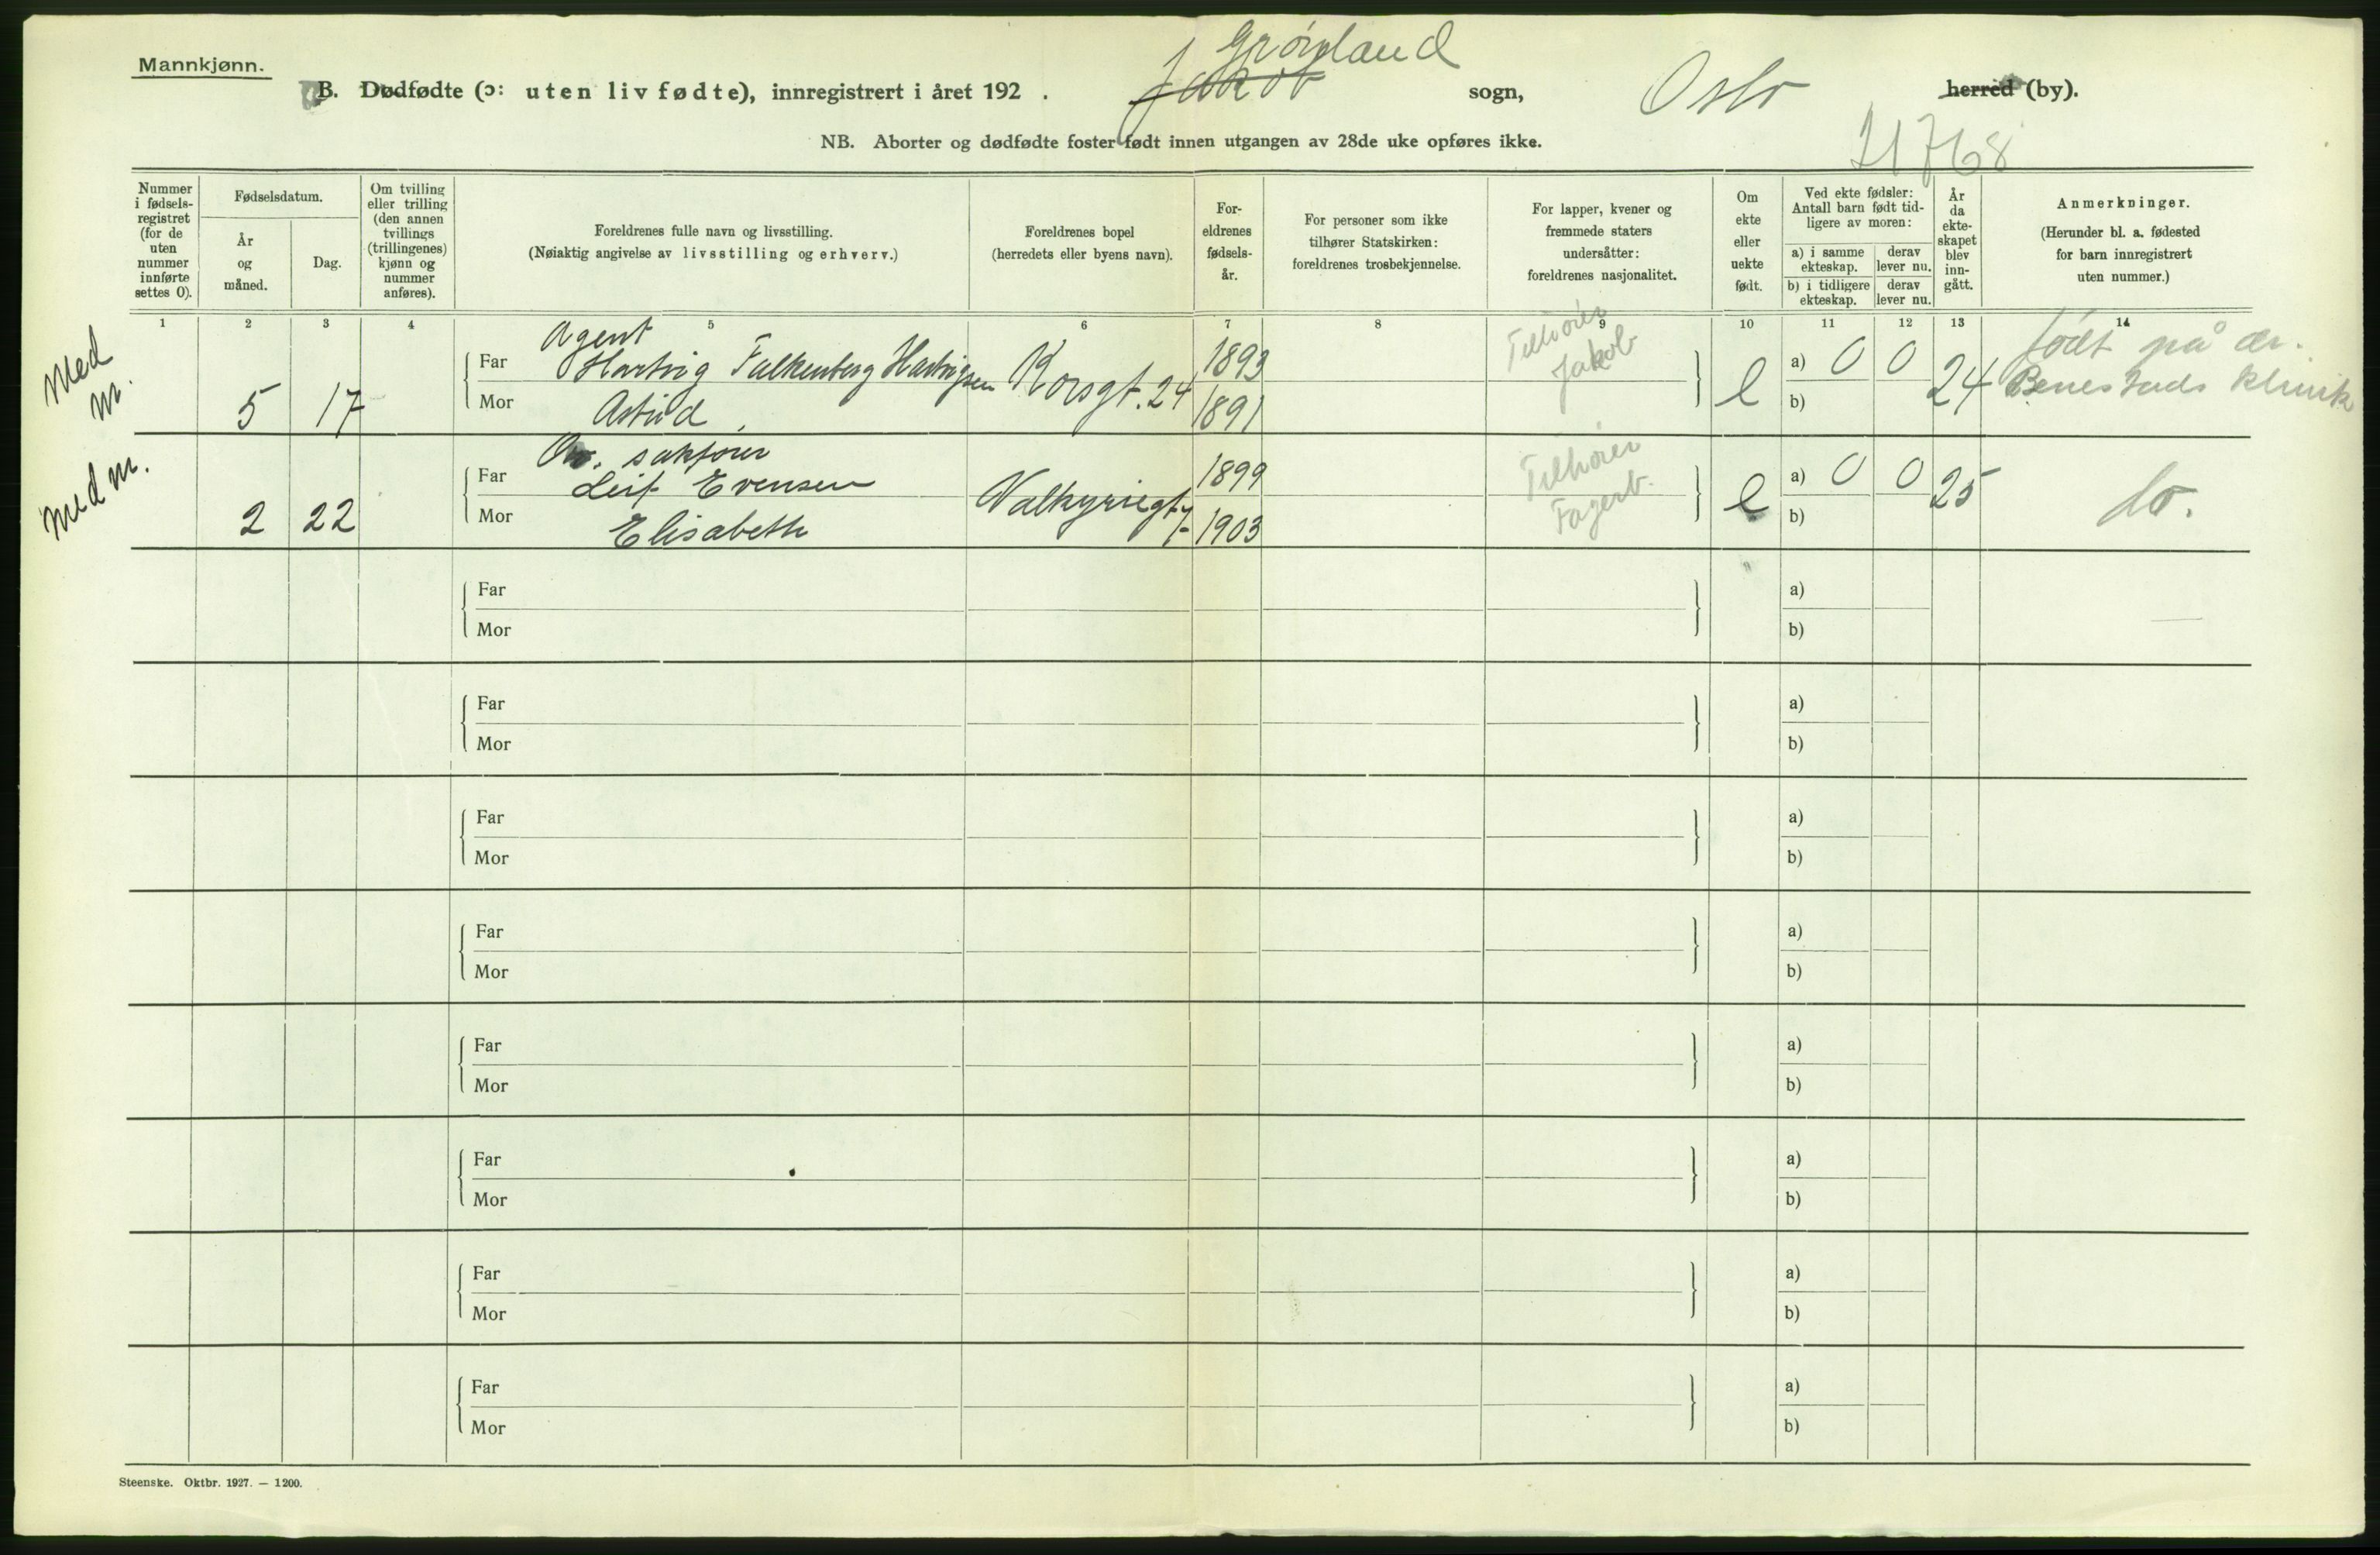 Mannkjønn.
Grønland
Jakob
B. Dødfødte (ɔ: uten liv fødte), innregistrert i året 192 . sogn, Oslo herred (by).
NB. Aborter og dødfødte foster født innen utgangen av 28de uke opføres ikke.
21768
Nummer i fødsels-registret (for de uten nummer innførte settes 0).
Fødselsdatum.
År og måned.
Dag.
Om tvilling eller trilling (den annen tvillings (trillingenes) kjønn og nummer anføres).
Foreldrenes fulle navn og livsstilling.
(Nøiaktig angivelse av livsstilling og erhverv.)
Foreldrenes bopel
(herredets eller byens navn).
For-eldrenes fødsels-år.
For personer som ikke tilhører Statskirken: foreldrenes trosbekjennelse.
For lapper, kvener og fremmede staters undersåtter: foreldrenes nasjonalitet.
Om ekte eller uekte født.
Ved ekte fødsler: Antall barn født tid-ligere av moren:
a) i samme ekteskap.
derav lever nu.
b) i tidligere ekteskap.
derav lever nu.
År da ekte-skapet blev inn-gått.
Anmerkninger.
(Herunder bl. a. fødested for barn innregistrert uten nummer.)
1 2 3 4 5 6 7 8 9 10 11 12 13 14
Med m.
5 17
Agent
Far Hartvig Falkenberg Hartvigsen
Mor Astrid
Korsgt. 24
1893
1891
Tilhører Jakob
e
a) 0 0
b)
24
født på dr. Benestads klinik
Med m.
2 22
sakfører
Far Leif Evensen
Mor Elisabeth
Valkyriegt 7
1899
1903
Tilhører Fagerb.
e
a) 0 0
b)
25
do.
Far a)
Mor b)
Far a)
Mor b)
Far a)
Mor b)
Far a)
Mor b)
Far a)
Mor b)
Far a)
Mor b)
Far a)
Mor b)
Far a)
Mor b)
Steenske. Oktbr. 1927. — 1200.